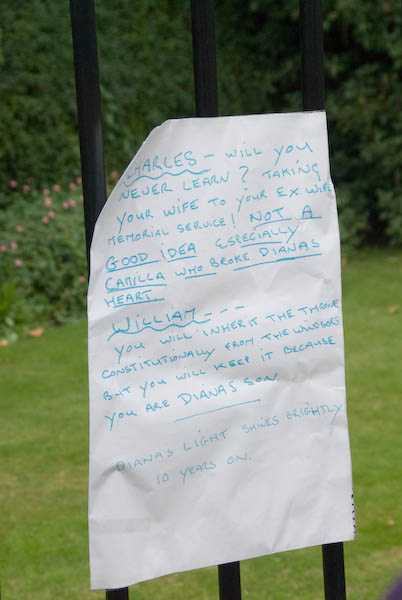 CHARLES - WILL YOU
NEVER LEARN? TAKING
YOUR WIFE TO YOUR EX WIFE
MEMORIAL SERVICE! NOT A
GOOD IDEA ESPECIALLY
CAMILLA WHO BROKE DIANAS
HEART
WILLIAM---
YOU WILL INHERIT THE THRONE
CONSTITUTIONALLY FROM THE WINDSORS
BUT YOU WILL KEEP IT BECAUSE
YOU ARE DIANAS SON.
DIANAS LIGHT SHINES BRIGHTLY
10 YEARS ON.